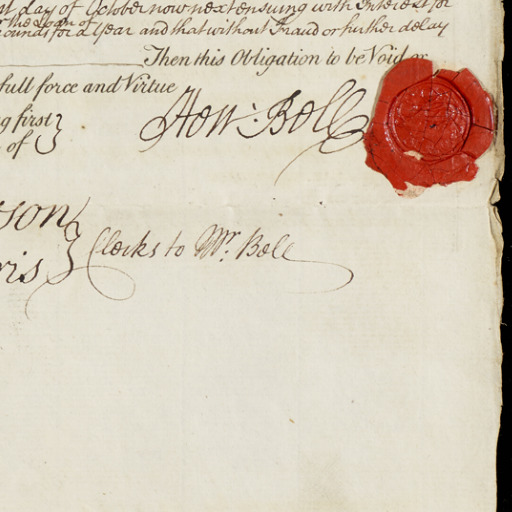 st day of October now next ensuing with Interest for
r the Loan of
ounds for a Year and that without Fraud or further delay
Then this Obligation to be Void or
full force and Virtue
g first
of
Hen: Bell
son
ris
Clerks to Mr. Bell